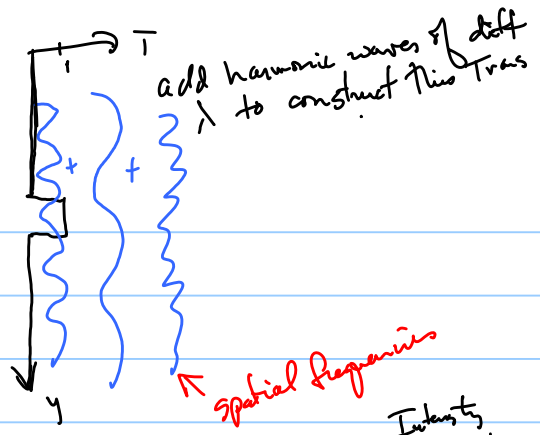 T
1
add harmonic waves of diff
λ to construct this Trans
+ +
spatial frequencies
y
Intensity